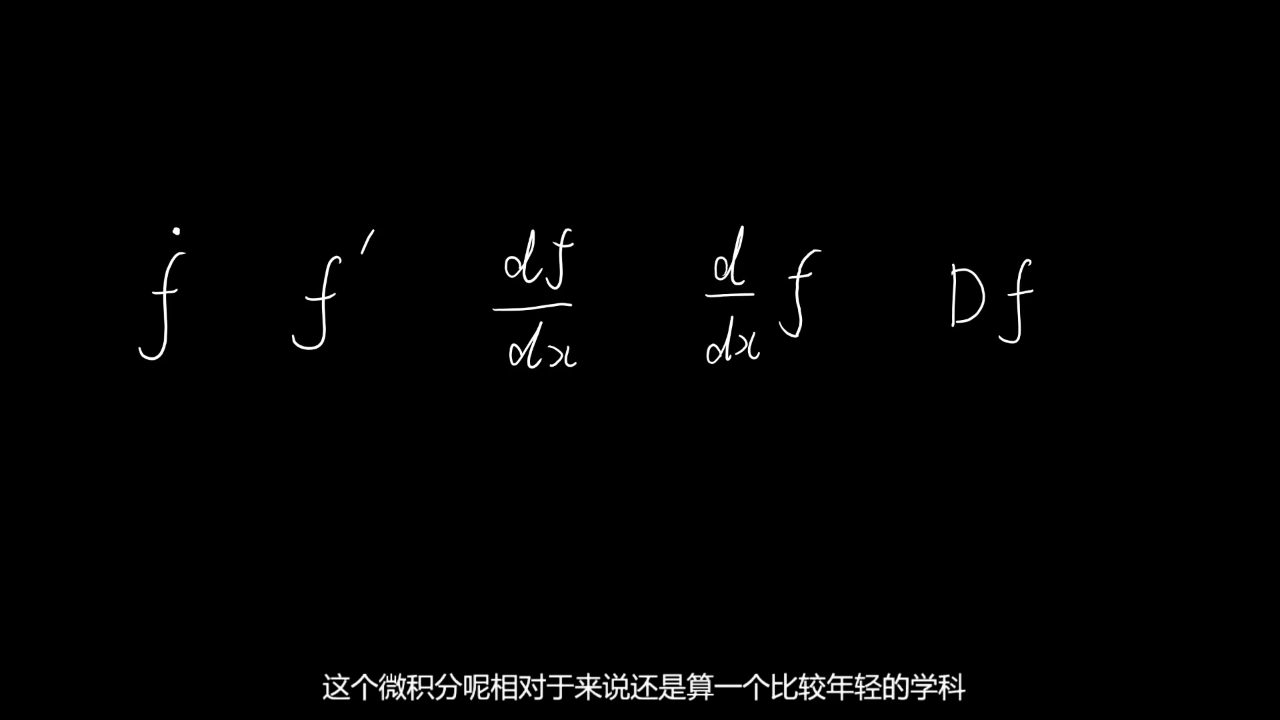 ḟ f′ df/dx d/dx f Df
这个微积分呢相对于来说还是算一个比较年轻的学科